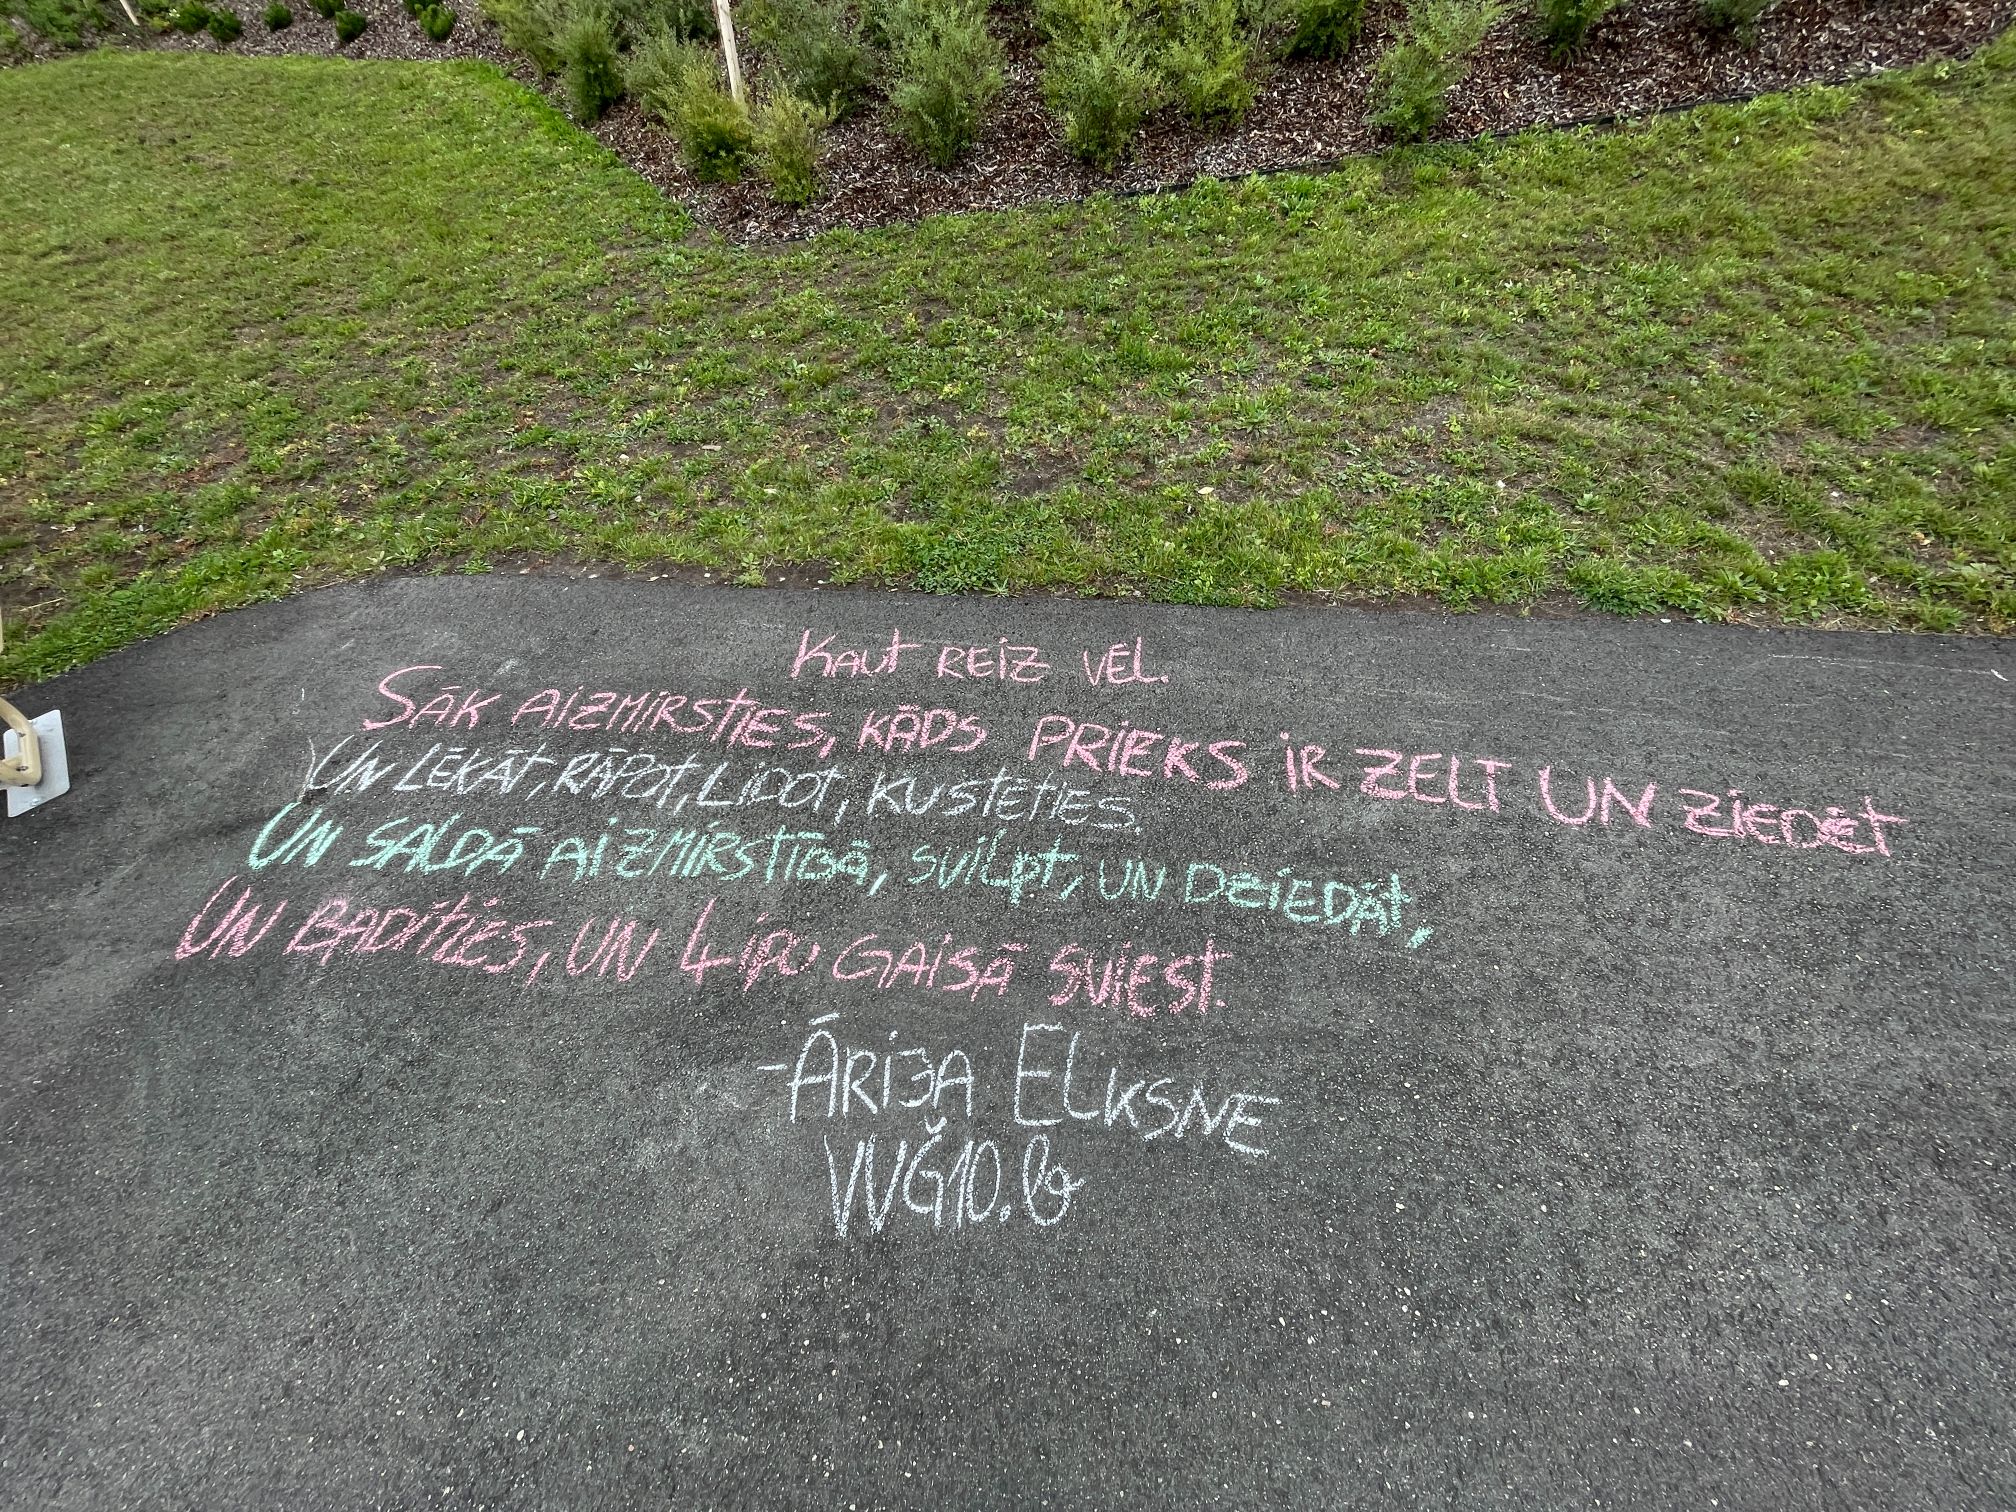 Kaut REiZ VĒL.
SĀK AiZMiRSTIES, KĀDS PRIEKS iR ZELT UN ZiEDĒT
UN LĒKĀT, RĀPOT, LiDOT, KUSTĒTIES.
UN SALDĀ AiZMiRSTĪBĀ, SViLPT, UN DZiEDĀT,
UN BADĪTIES, UN ĻIPU GAiSĀ SViEST.
-ĀRiJA ELKSNE
VVĢ10.b